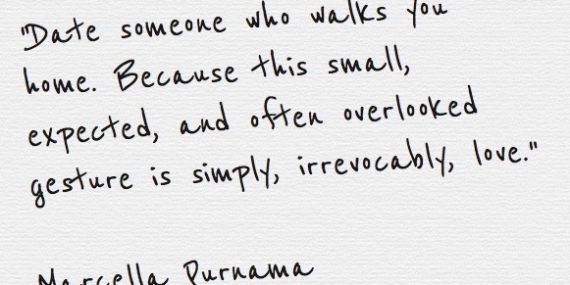 "Date someone who walks you
home. Because this small,
expected, and often overlooked
gesture is simply, irrevocably, love."
Marcella Purnama